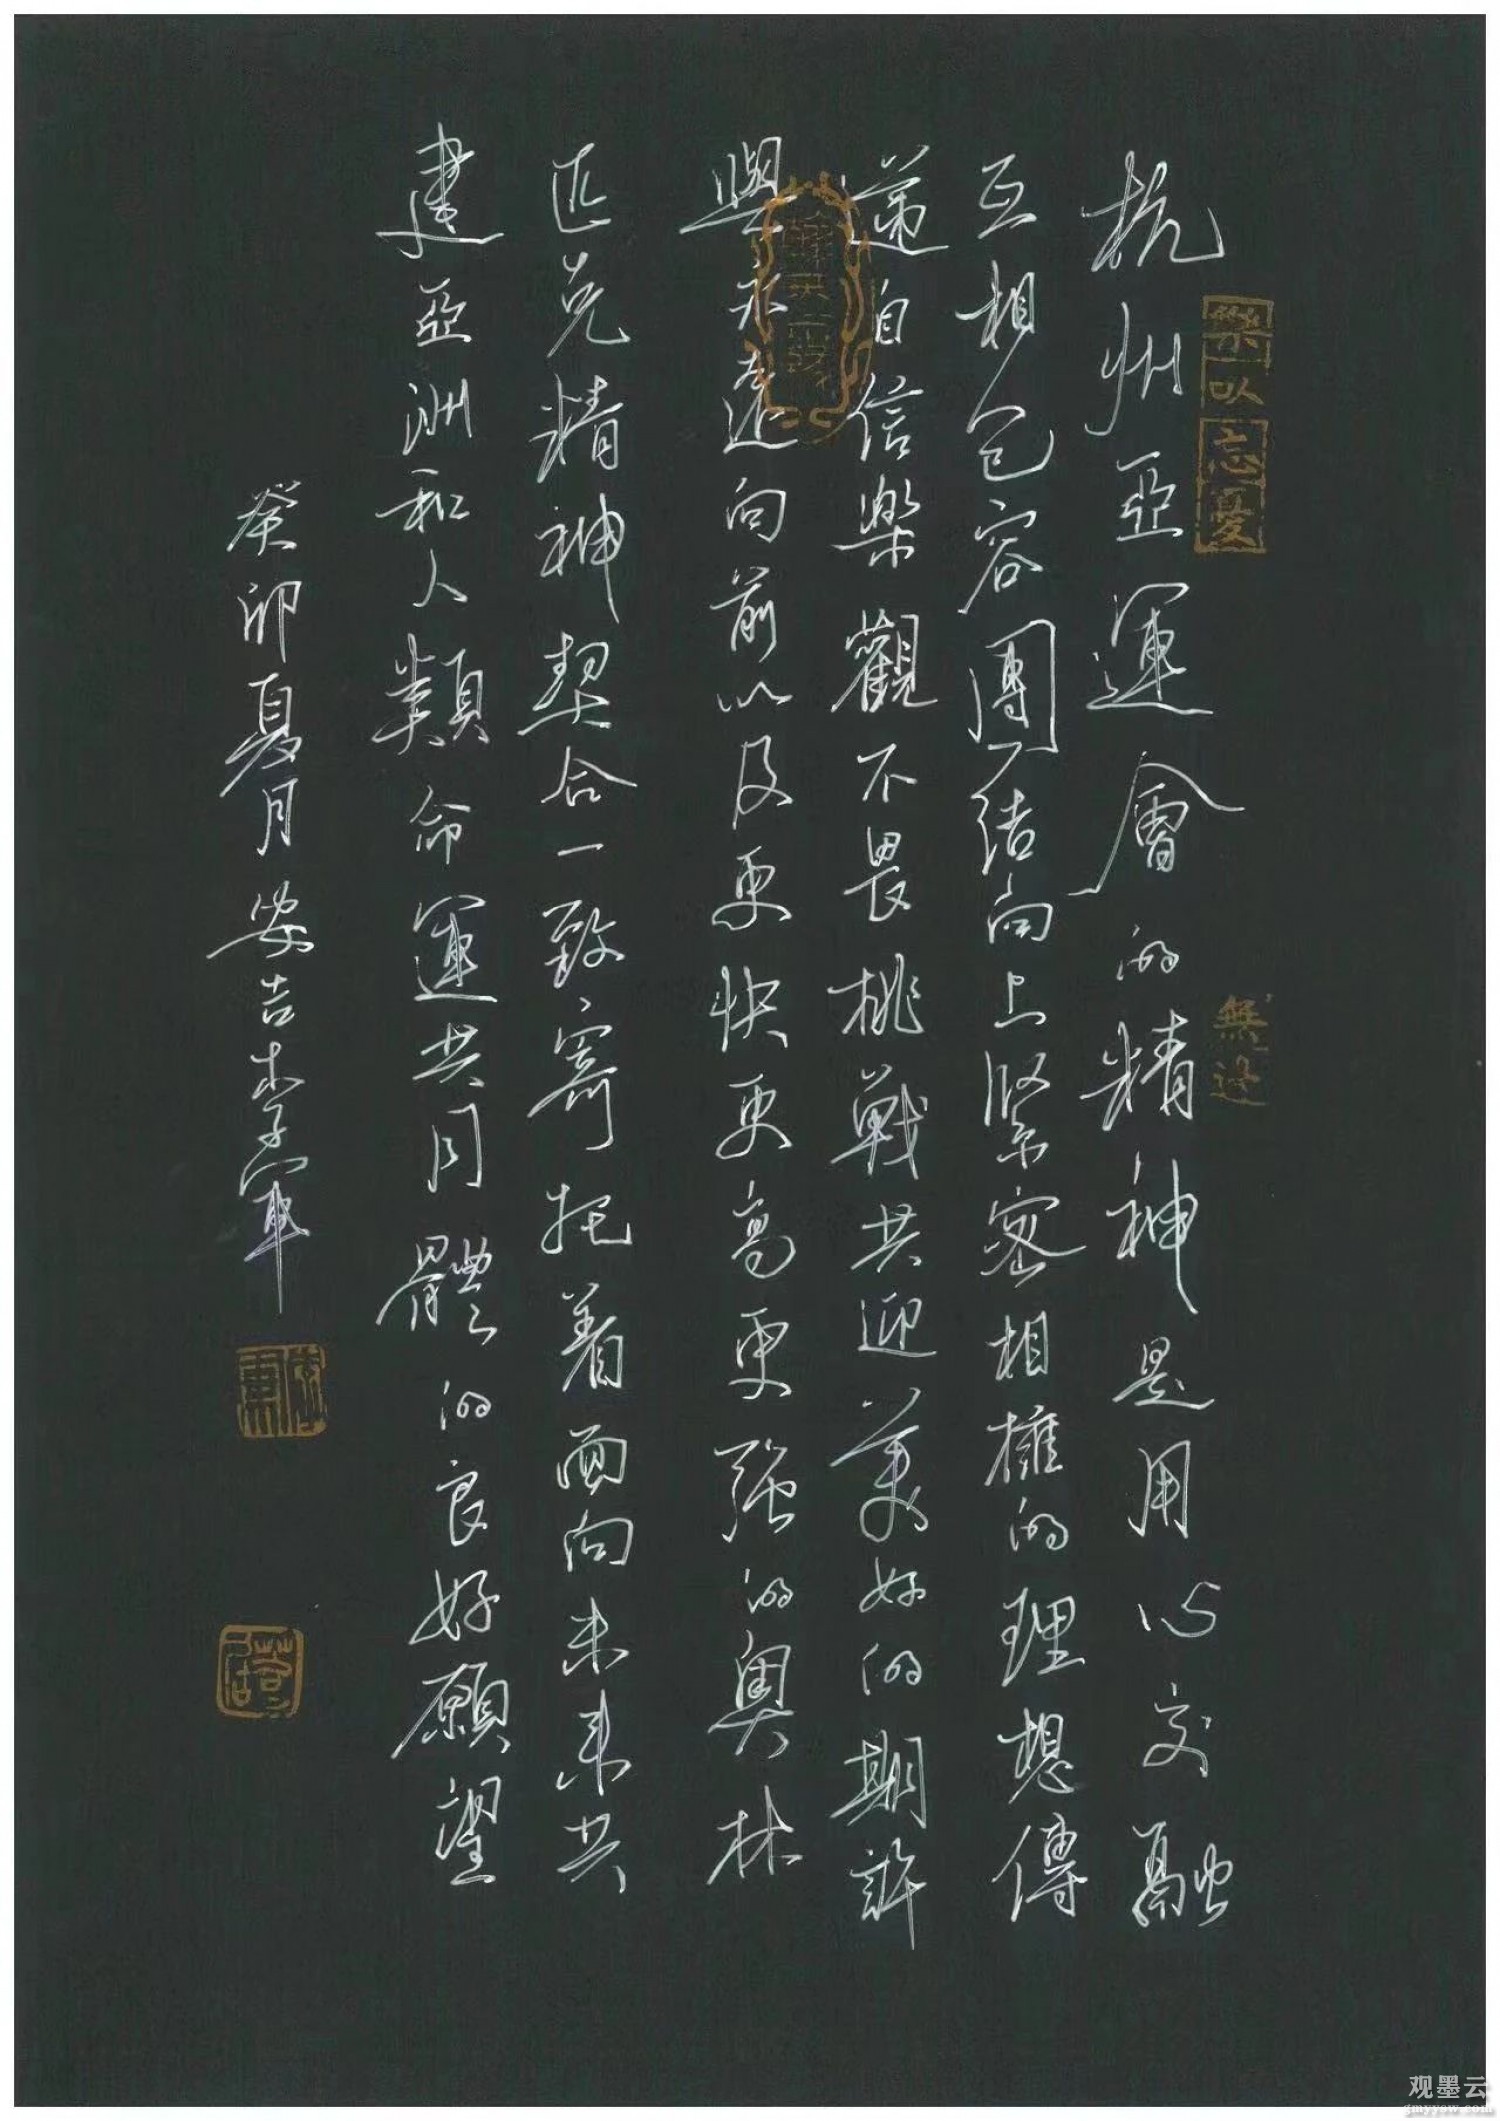 杭州亞運會的精神是用心交融
互相包容團結向上緊密相擁的理想傳
遞自信樂觀不畏挑戰共迎美好的期許
與永遠向前以及更快更高更强的奧林
匹克精神契合一致寄托着面向未来共
建亞洲和人類命運共同體的良好願望
癸卯夏月安吉李軍
樂以忘憂
無逸
观墨云
gmyyow.com